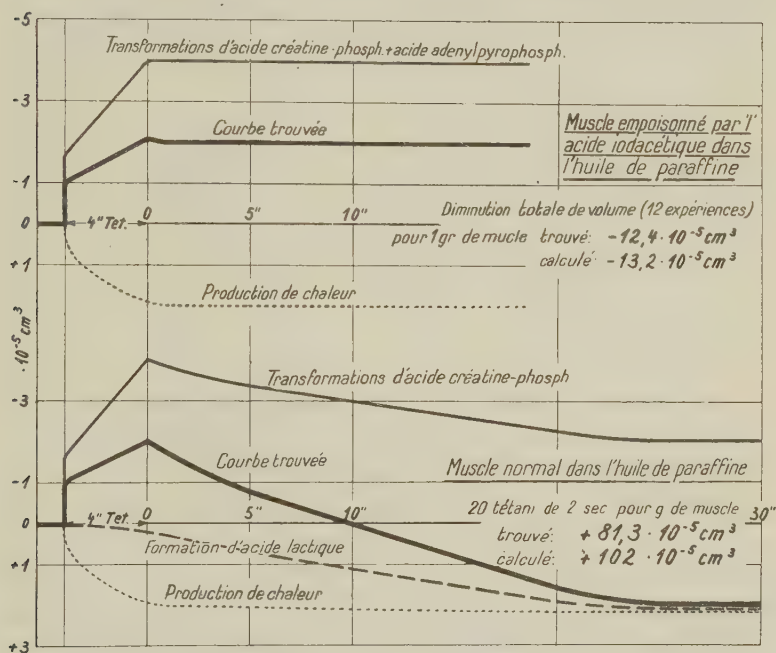 -5
Transformations d'acide créatine-phosph.+acide adenylpyrophosph.
-3
Courbe trouvée
Muscle empoisonné par l'
acide iodacétique dans
l'huile de paraffine
-1
0
4" Tet.
0
5"
10"
Dimmution totale de volume (12 expériences)
pour 1 gr de mucle trouvé: -12,4·10⁻⁵cm³
calculé: -13,2·10⁻⁵cm³
+1
Production de chaleur
·10⁻⁵cm³
Transformations d'acide créatine-phosph
-3
Courbe trouvée
-1
Muscle normal dans l'huile de paraffine
0
4" Tet.
0
5"
10"
20 tétani de 2 sec pour g de muscle
30"
trouvé: +81,3·10⁻⁵cm³
calculé: +102·10⁻⁵cm³
Formation-d'acide lactique
+1
Production de chaleur
+3